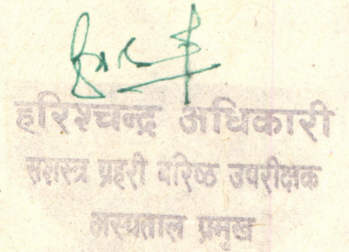 हरिश्चन्द्र अधिकारी
सशस्त्र प्रहरी वरिष्ठ उपरीक्षक
अस्पताल प्रमुख